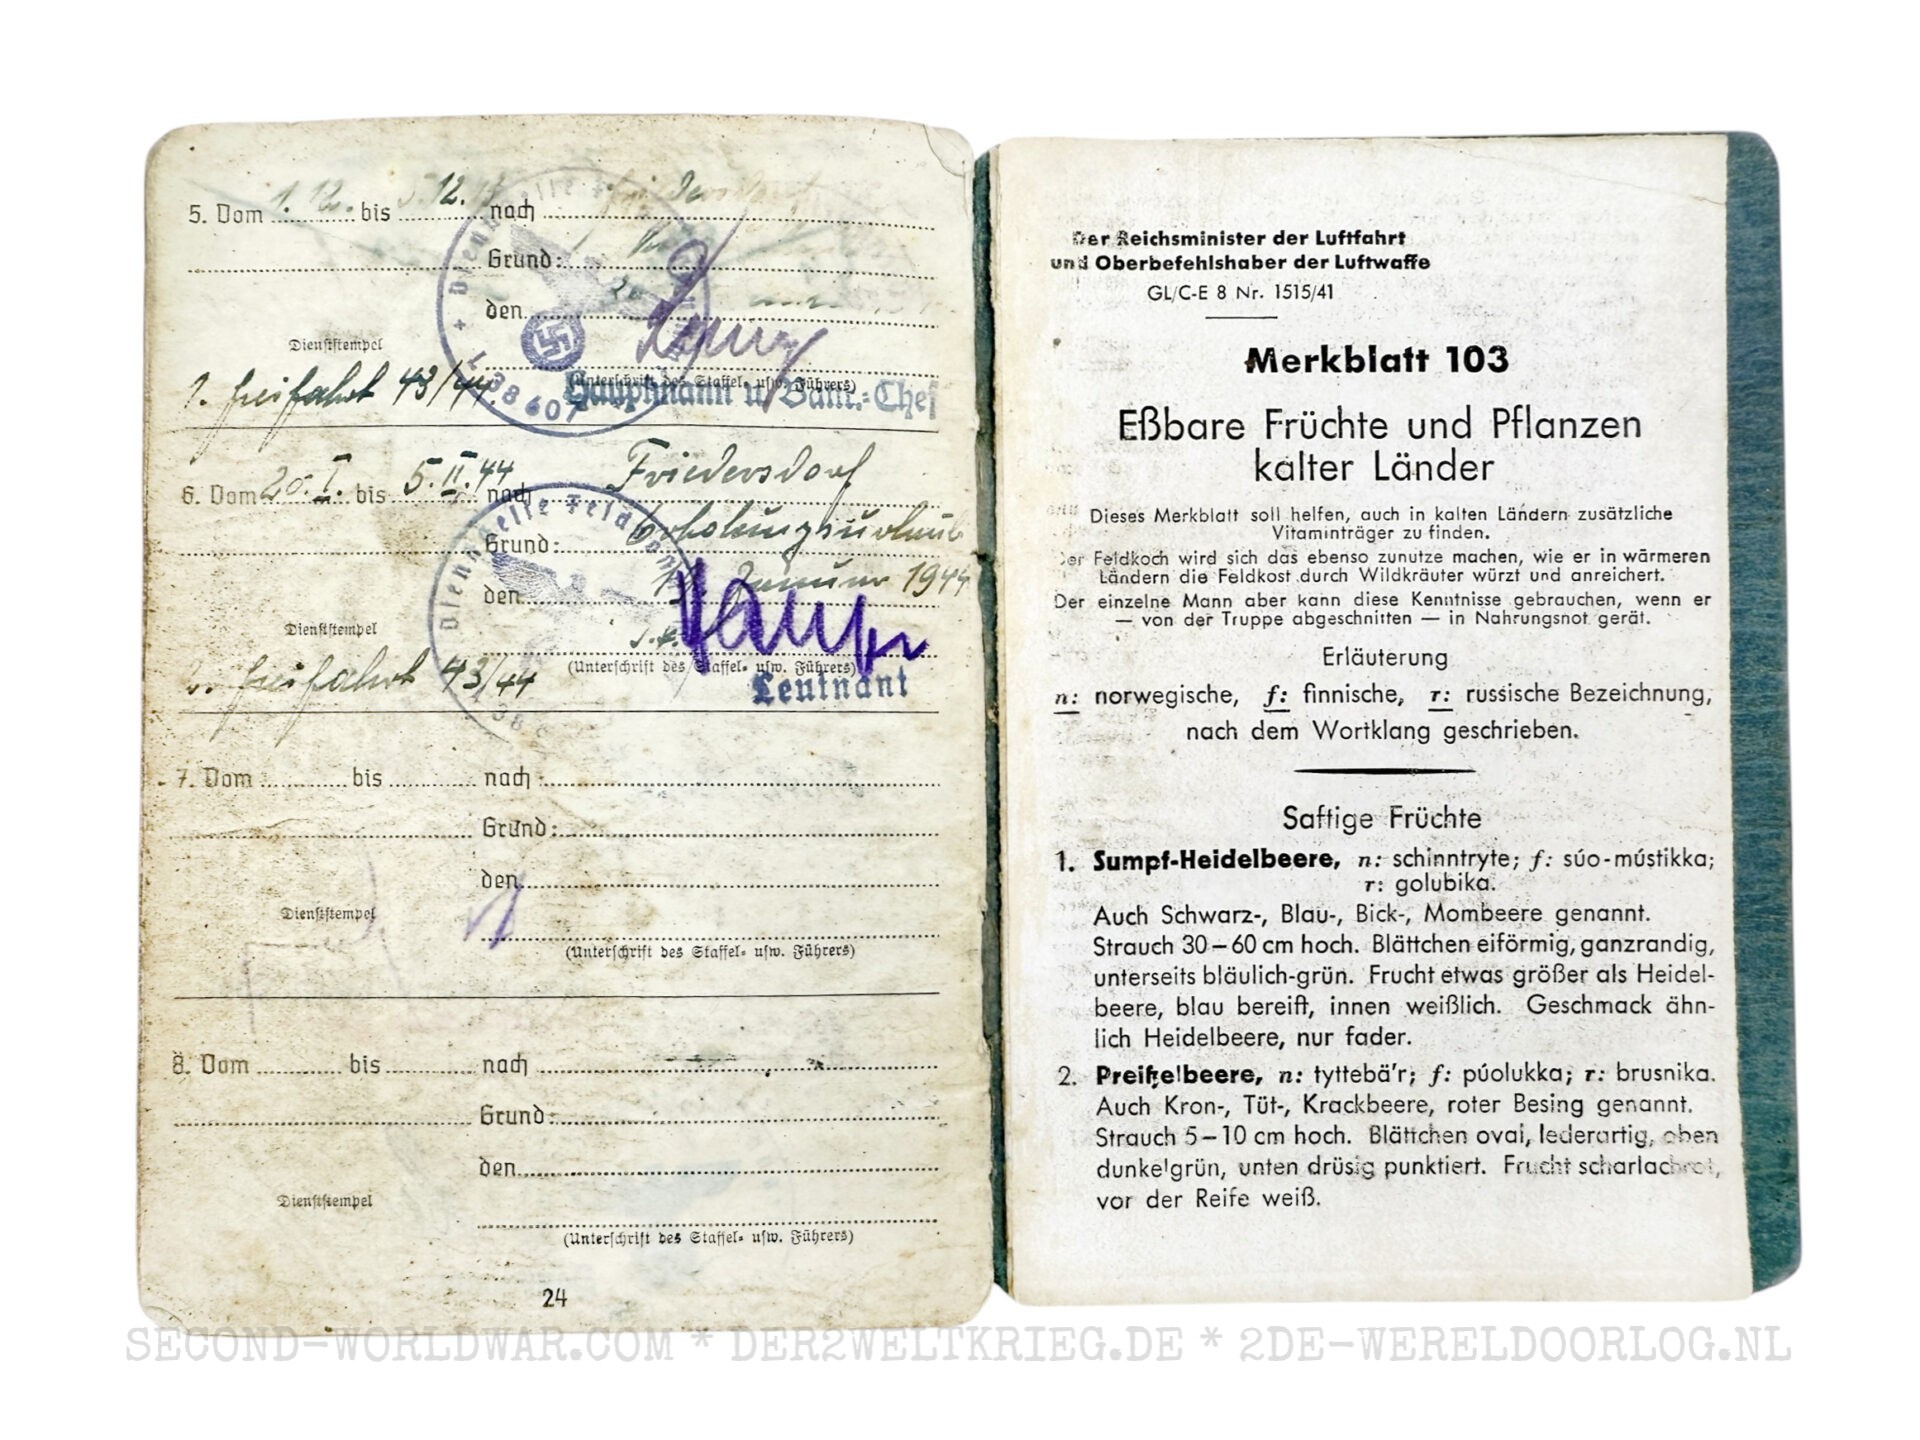 5. Vom 1.12. bis 5.12. nach
Grund:
den
Dienststempel
(Unterschrift des Staffel- usw. Führers)
Hauptmann u. Battr.-Chef
1. Freifahrt 43/44.
Dienststelle
L 38607
6. Vom 20.I. bis 5.II.44 nach Friedersdorf
Grund: Erholungsurlaub
den Januar 1944
Dienststempel
(Unterschrift des Staffel- usw. Führers)
Leutnant
2. Freifahrt 43/44
Dienststelle Feldpost
7. Vom bis nach
Grund:
den
Dienststempel
(Unterschrift des Staffel- usw. Führers)
8. Vom bis nach
Grund:
den
Dienststempel
(Unterschrift des Staffel- usw. Führers)
24
Der Reichsminister der Luftfahrt
und Oberbefehlshaber der Luftwaffe
GL/C-E 8 Nr. 1515/41
Merkblatt 103
Eßbare Früchte und Pflanzen
kalter Länder
Dieses Merkblatt soll helfen, auch in kalten Ländern zusätzliche
Vitaminträger zu finden.
Der Feldkoch wird sich das ebenso zunutze machen, wie er in wärmeren
Ländern die Feldkost durch Wildkräuter würzt und anreichert.
Der einzelne Mann aber kann diese Kenntnisse gebrauchen, wenn er
— von der Truppe abgeschnitten — in Nahrungsnot gerät.
Erläuterung
n: norwegische, f: finnische, r: russische Bezeichnung,
nach dem Wortklang geschrieben.
Saftige Früchte
1. Sumpf-Heidelbeere, n: schinntryte; f: súo-mústikka;
r: golubika.
Auch Schwarz-, Blau-, Bick-, Mombeere genannt.
Strauch 30–60 cm hoch. Blättchen eiförmig, ganzrandig,
unterseits bläulich-grün. Frucht etwas größer als Heidel-
beere, blau bereift, innen weißlich. Geschmack ähn-
lich Heidelbeere, nur fader.
2. Preißelbeere, n: tyttebä'r; f: púolukka; r: brusnika.
Auch Kron-, Tüt-, Krackbeere, roter Besing genannt.
Strauch 5–10 cm hoch. Blättchen oval, lederartig, oben
dunkelgrün, unten drüsig punktiert. Frucht scharlachrot,
vor der Reife weiß.
SECOND-WORLDWAR.COM * DER2WELTKRIEG.DE * 2DE-WERELDOORLOG.NL